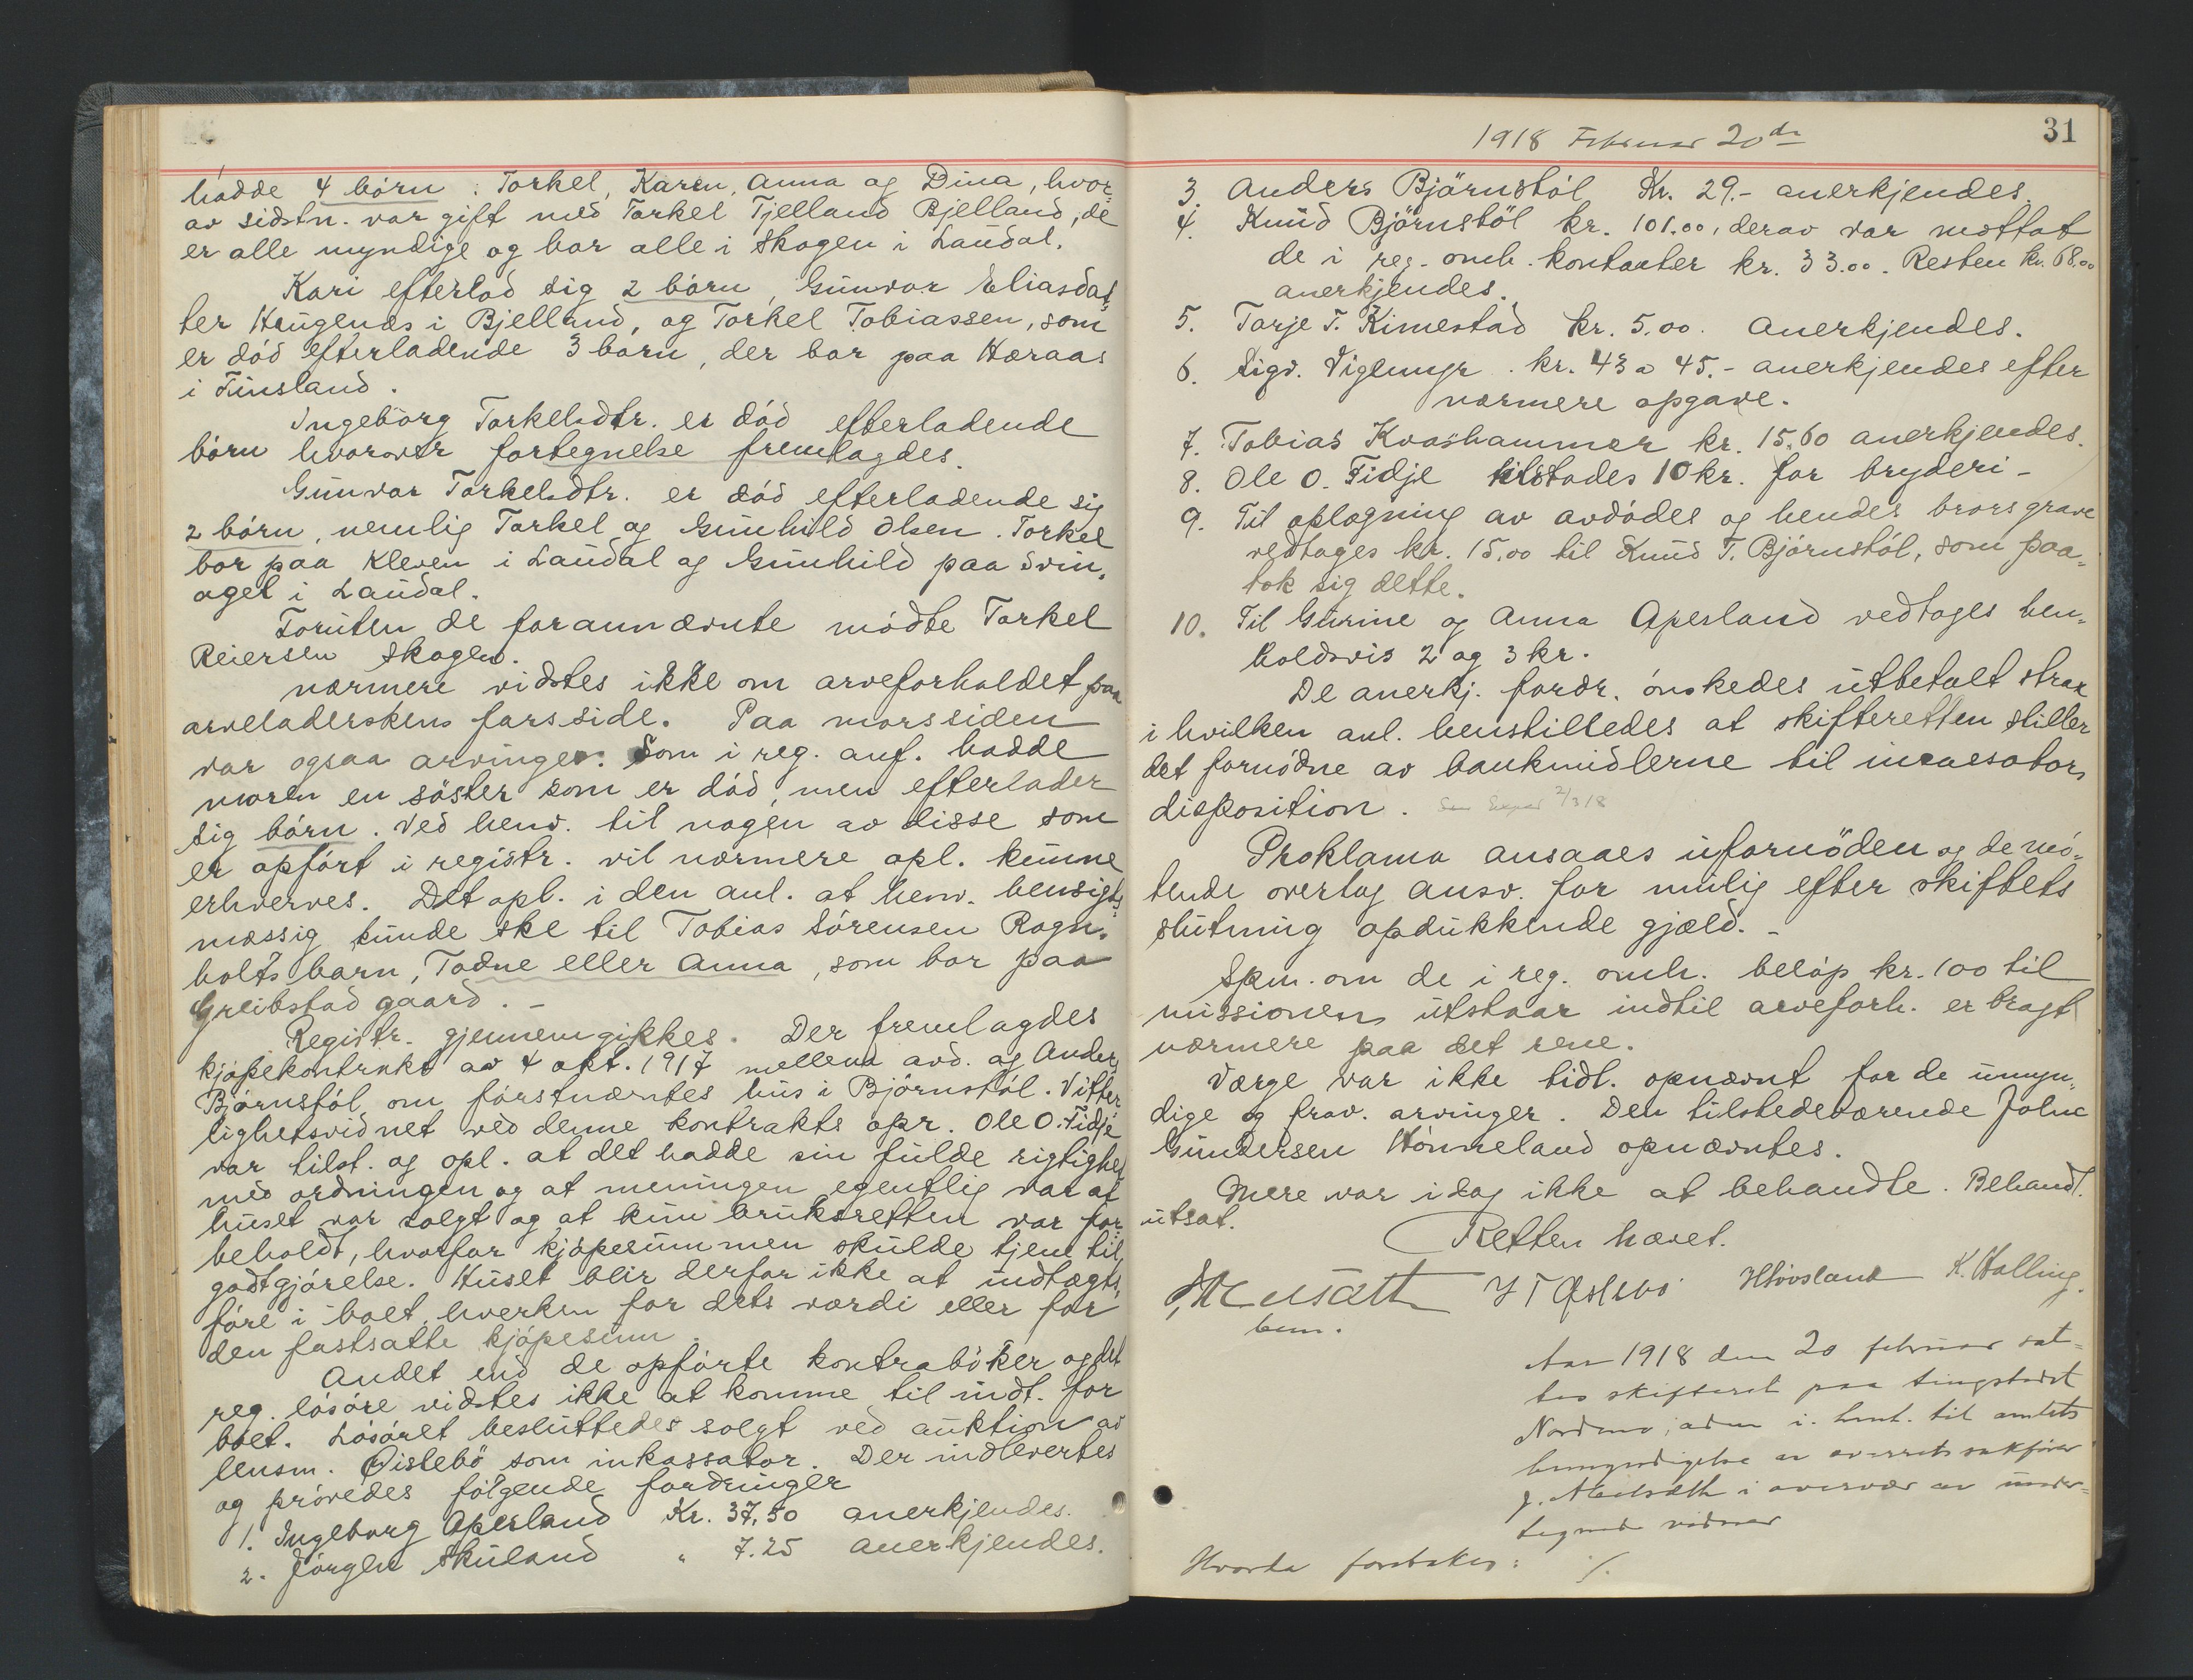 hadde 4 börn: Torkel, Karen, Anna og Dina, hvor-
av sidstn. var gift med Torkel Tjelland Bjelland, de
er alle myndige og bor alle i Skogen i Laudal.
Kari efterlod sig 2 börn, Gunvor Eliasdat-
ter Haugenes i Bjelland, og Torkel Tobiassen, som
er död efterladende 3 barn, der bor paa Høraas
i Finsland.
Ingeborg Torkelsdtr. er död efterladende
börn hvorover fortegnelse fremlagdes.
Gunvor Torkelsdtr. er död efterladende sig
2 börn, nemlig Torkel og Gunhild Olsen. Torkel
bor paa Kleven i Laudal og Gunhild paa Svin-
aget i Laudal.
Foruten de forannævnte mödte Torkel
Reiersen Skogen.
nærmere vidstes ikke om arveforholdet paa
arveladerskens farsside. Paa morssiden
var ogsaa arvinger. Som i reg. anf. hadde
moren en söster som er död, men efterlader
sig börn. Ved henv. til nogen av disse som
er opfört i registr. vil nærmere opl. kunne
erhverves. Det opl. i den anl. at henv. hensigts-
mæssig kunde ske til Tobias Sörensen Rogn-
bolts barn, Todne eller Anna, som bor paa
Greibstad gaard. -
Registr. gjennemgikkes. Der fremlagdes
kjöpekontrakt av 4 okt. 1917 mellem avd. og Anders
Björnstöl om förstnævntes hus i Björnstöl. Vitter-
lighetsvidnet ved denne kontrakts opr. Ole O. Fidje
var tilst. og opl. at det hadde sin fulde rigtighet
med ordningen og at meningen egentlig var at
huset var solgt og at kun bruksretten var for-
beholdt, hvorfor kjöpesummen skulde tjene til
godtgjörelse. Huset blir derfor ikke at indtægts-
före i boet, hverken for dets værdi eller for
den fastsatte kjöpesum.
Andet end de opförte kontraböker og det
reg. lösöre vidstes ikke at komme til indt. for
boet. Lösöret besluttedes solgt ved auktion av
lensm. Øislebö som inkassator. Der indlevertes
og prövedes fölgende fordringer
1. Ingeborg Aperland Kr. 37,50 anerkjendes.
2. Jörgen Skuland " 7.25 anerkjendes.
1918 Februar 20de
31
3. Anders Björnstöl Kr. 29.- anerkjendes.
4. Knud Björnstöl kr. 101.00, derav var mottat
de i reg. omh. kontanter kr. 33.00. Resten kr. 68.00
anerkjendes.
5. Tarje T. Kimestad kr. 5.00. Anerkjendes.
6. Sigv. Viglemyr. kr. 43 a 45.- anerkjendes efter
nærmere opgave.
7. Tobias Kvashammer kr. 15.60 anerkjendes.
8. Ole O. Fidje tilstodes 10 kr. for bryderi -
9. Til oplagning av avdödes og hendes brors grave
vedtages kr. 15.00 til Knud T. Björnstöl, som paa-
tok sig dette.
10. Til Gurine og Anna Aperland vedtages hen-
holdsvis 2 og 3 kr.
De anerkj. fordr. önskedes utbetalt strax
i hvilken anl. henstilledes at skifteretten stiller
det fornödne av bankmidlerne til incassators
disposition. 2/3 18
Proklama ansaaes ufornöden og de mö-
tende overtog ansv. for mulig efter skiftets
slutning opdukkende gjæld. -
Spm. om de i reg. omh. belöp kr. 100 til
missionen utstaar indtil arveforh. er bragt
nærmere paa det rene.
Værge var ikke tidl. opnævnt for de umyn-
dige og frav. arvinger. Den tilstedeværende Johne
Gundersen Hönneland opnævntes.
Mere var idag ikke at behandle. Behandl.
utsat.
Retten hævet.
bem. Y T Øslebö HHovsland K. Halling.
Aar 1918 den 20 februar sat-
tes skifteret paa tingstedet
Nordmo, adm i. henh. til amtets
bemyndigelse av overretssakförer
J. Meisæth i overvær av under-
tegnede vidner
Hvorda foretokes: ./.